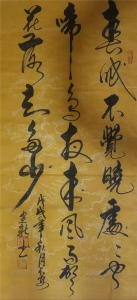 春眠不覺曉處々聞
啼鳥夜来風雨聲
花落知多少
戊戌年秋月
書